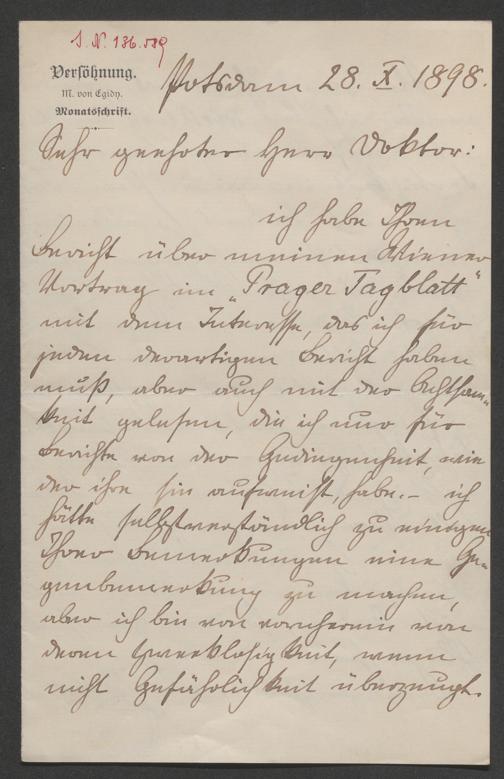 J. N. 136.589
Versöhnung.
M. von Egidy.
Monatsschrift.
Potsdam 28. X. 1898.
Sehr geehrter Herr Doktor:
ich habe Ihren
Bericht über meinen Wiener
Vortrag im „Prager Tagblatt"
mit dem Interesse, das ich für
jeden derartigen Bericht haben
muß, aber auch mit der Achtsam-
keit gelesen, die ich nur für
Berichte von der Gediegenheit, wie
der ihre sie aufweist, habe. – ich
hätte selbstverständlich zu einigen
Ihrer Bemerkungen eine Ge-
genbemerkung zu machen,
aber ich bin von vornherein von
deren Zwecklosigkeit, wenn
nicht Gefährlichkeit überzeugt.